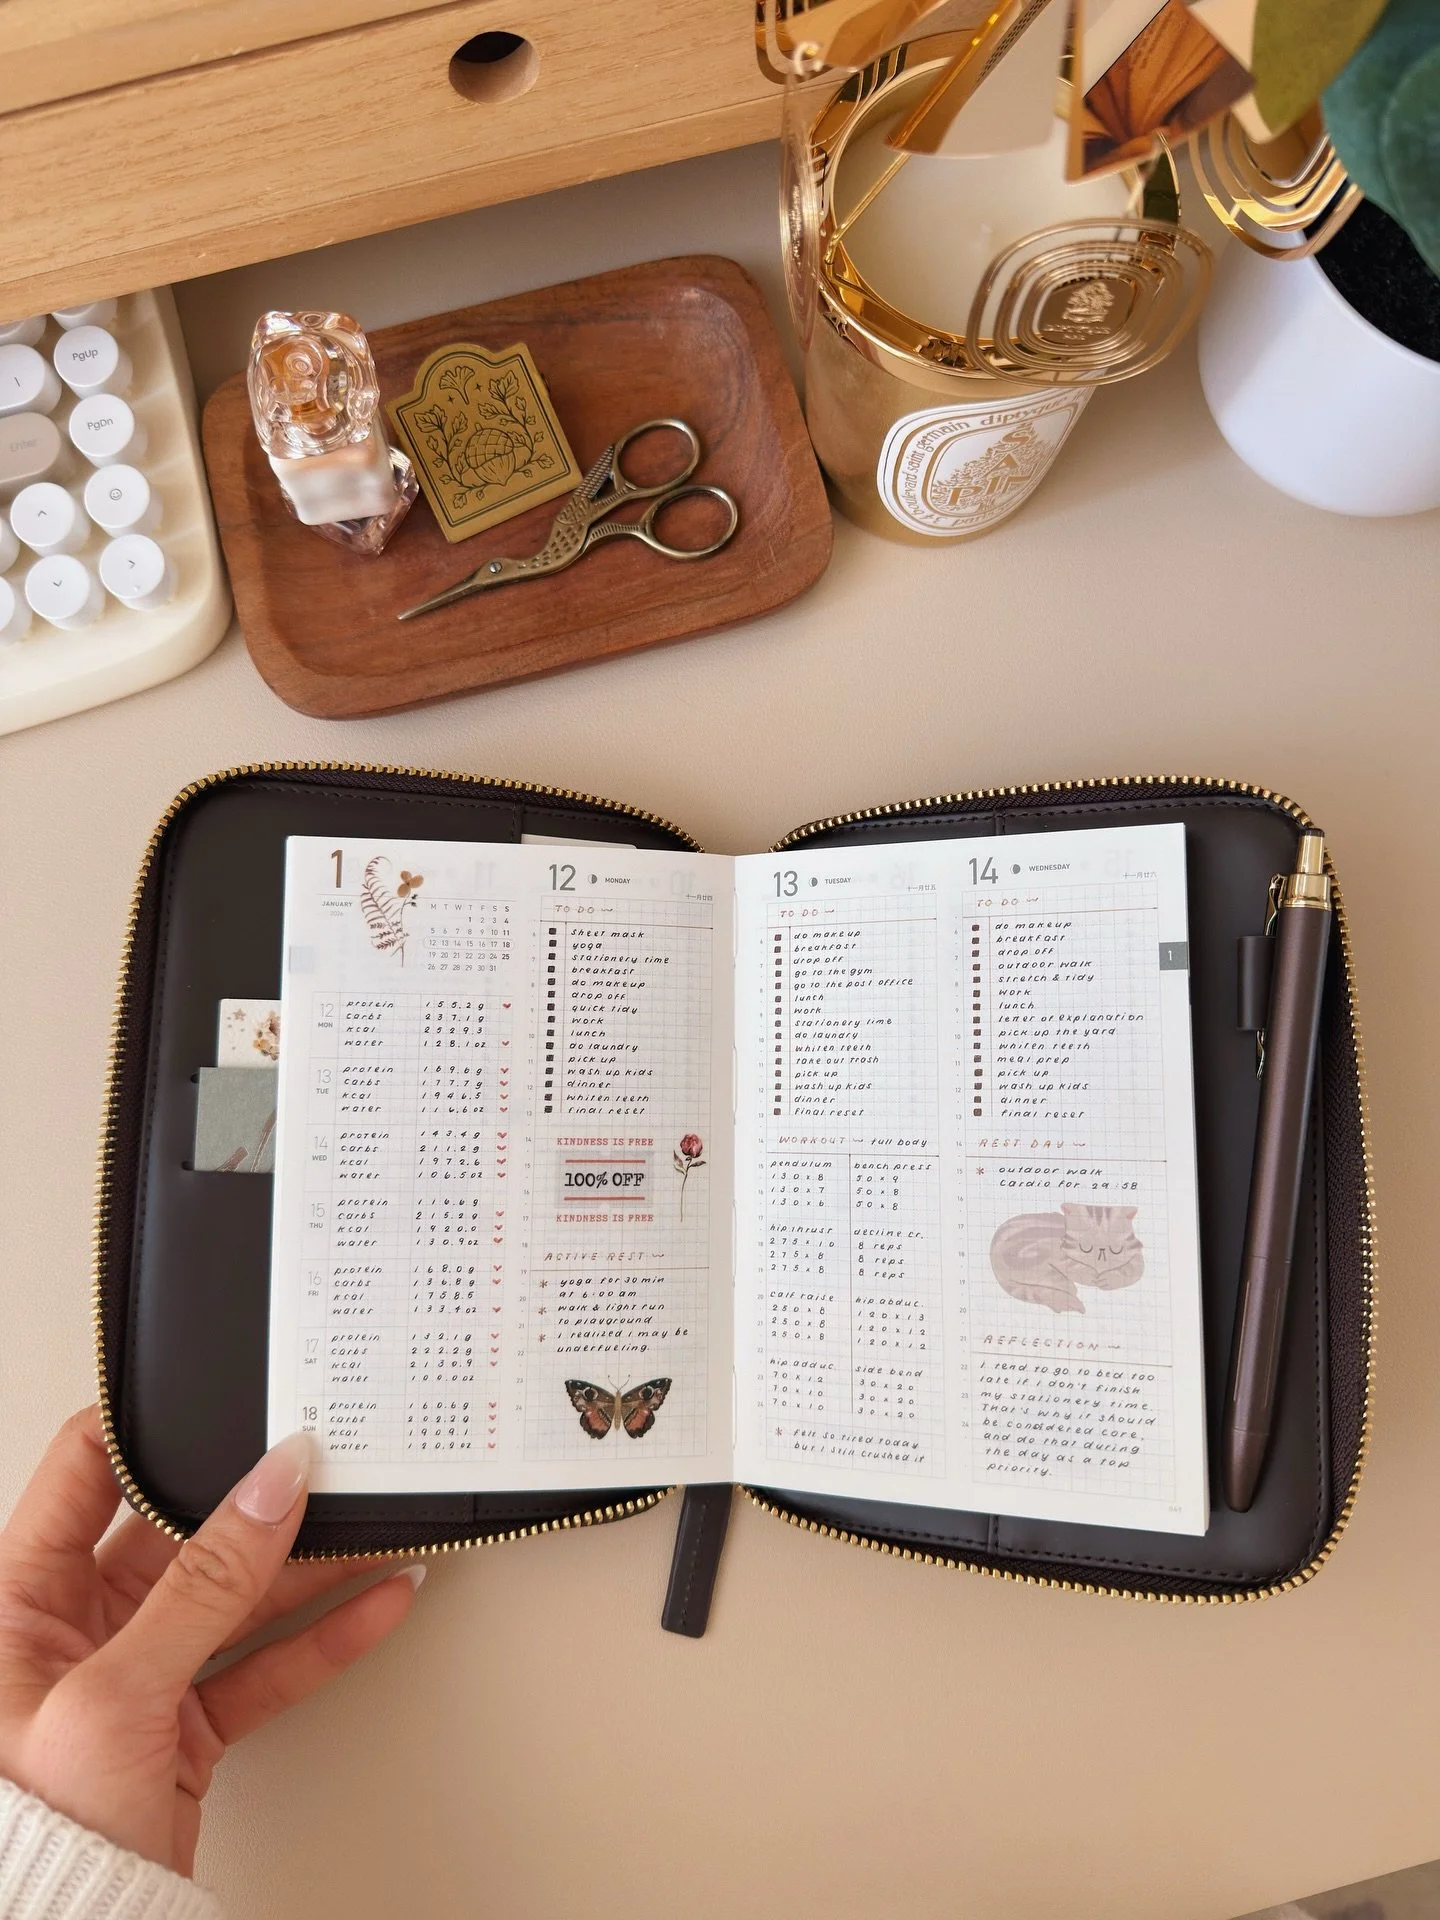 PgUp
PgDn
Enter
34 boulevard saint germain diptyque
1
JANUARY
2026
M T W T F S S
1 2 3 4
5 6 7 8 9 10 11
12 13 14 15 16 17 18
19 20 21 22 23 24 25
26 27 28 29 30 31
12 MON
protein 155.2g
carbs 237.1g
kcal 2529.3
water 128.1oz
13 TUE
protein 169.6g
carbs 177.7g
kcal 1946.5
water 116.6oz
14 WED
protein 143.4g
carbs 211.2g
kcal 1972.6
water 106.5oz
15 THU
protein 116.6g
carbs 215.2g
kcal 1920.0
water 130.9oz
16 FRI
protein 168.0g
carbs 136.8g
kcal 1758.5
water 133.4oz
17 SAT
protein 132.1g
carbs 222.2g
kcal 2130.9
water 100.0oz
18 SUN
protein 160.6g
carbs 202.2g
kcal 1909.1
water 120.2oz
12 MONDAY
十一月廿四
TO DO
sheet mask
yoga
stationery time
breakfast
do makeup
drop off
quick tidy
work
lunch
do laundry
pick up
wash up kids
dinner
whiten teeth
final reset
KINDNESS IS FREE
100% OFF
KINDNESS IS FREE
ACTIVE REST
* yoga for 30 min
at 6:00 am
* walk & light run
to playground
* i realized i may be
underfueling.
13 TUESDAY
十一月廿五
TO DO
do makeup
breakfast
drop off
go to the gym
go to the post office
lunch
work
stationery time
do laundry
whiten teeth
take out trash
pick up
wash up kids
dinner
final reset
WORKOUT full body
pendulum
130 x 8
130 x 7
130 x 6
bench press
50 x 9
50 x 8
50 x 8
hip thrust
275 x 10
275 x 8
275 x 8
decline cr.
8 reps
8 reps
8 reps
calf raise
250 x 8
250 x 8
250 x 8
hip abduc.
120 x 13
120 x 12
120 x 12
hip adduc.
70 x 12
70 x 10
70 x 10
side bend
30 x 20
30 x 20
30 x 20
* felt so tired today
but i still crushed it
14 WEDNESDAY
十一月廿六
TO DO
do makeup
breakfast
drop off
outdoor walk
stretch & tidy
work
lunch
letter of explanation
pick up the yard
whiten teeth
meal prep
pick up
wash up kids
dinner
final reset
1
REST DAY
* outdoor walk
cardio for 29:58
REFLECTION
i tend to go to bed too
late if i don't finish
my stationery time.
That's why it should
be considered care,
and do that during
the day as a top
priority.